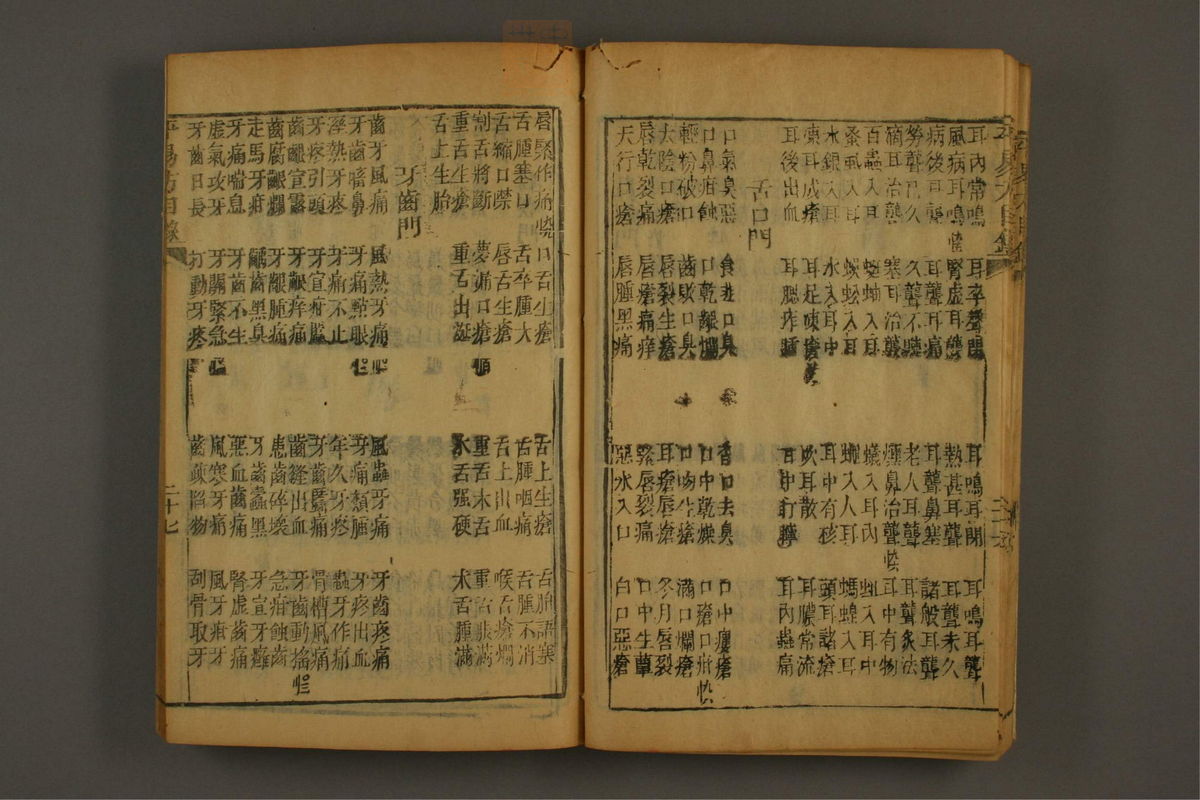 耳內常鳴 耳卒聾閉 耳鳴耳閉 耳鳴耳聾
風病耳鳴 腎虛耳聾 熱甚耳聾 耳聾未久
病後耳聾 耳聾耳痛 耳聾鼻塞 諸般耳聾
勞聾已久 久聾不聽 老人耳聾 耳聾灸法
滴耳治聾 塞耳治聾 煙鼻治聾 耳中有物
百蟲入耳 蚰蜒入耳 蟻入耳內 蚰入耳中
蚤虱入耳 蜈蚣入耳 蟬入人耳 蟆蝗入耳
水銀入耳 水入耳中 耳中有核 頭耳諸瘡
凍耳成瘡 耳足凍瘡 吹耳散 耳膿常流
耳後出血 耳腮痄腫 耳中疔 耳內蟲痛
舌口門
口氣臭惡 食韭口臭 香口去臭 口中瘻瘡
口鼻疳蝕 口乾 口中乾燥 口瘡口疳
輕粉破口 齒敗口臭 口吻生瘡 滿口爛瘡
太陰口瘡 唇裂生瘡 耳瘡唇瘡 冬月唇裂
唇乾裂痛 唇瘡痛痒 緊唇裂痛 口中生蕈
天行口瘡 唇腫黑痛 惡水入口 白口惡瘡
唇緊作痛 口舌生瘡 舌上生瘡 舌胎語蹇
舌腫塞口 舌卒腫大 舌腫咽痛 舌腫不消
舌縮口禁 唇舌生瘡 舌上出血 喉舌瘡爛
割舌將斷 夢漏口瘡 重舌木舌 重舌脹滿
重舌生瘡 重舌出涎 木舌强硬 木舌腫滿
舌上生胎
牙齒門
齒牙風痛 風熱牙痛 風蟲牙痛 牙齒疼痛
牙齒㗜鼻 牙痛點眼 牙痛顋腫 牙疼出血
瘀熱牙疼 牙痛不止 年久牙疼 蟲牙作痛
牙疼引頭 牙宣疳 牙齒蠶痛 骨槽風痛
齒齦宣露 牙齦痒痛 齒縫出血 牙齒動搖
齒腐齦爛 牙齦腫痛 患齒碎壞 急疳蝕齒
走馬牙疳 齲齒黑臭 牙齒蠹黑 牙宣牙癰
牙痛喘息 牙齒不生 惡血齒痛 腎虛齒痛
虛氣攻牙 牙關緊急 風寒牙痛 風牙疳牙
牙齒日長 打動牙疼 齒 刮骨取牙
二十七